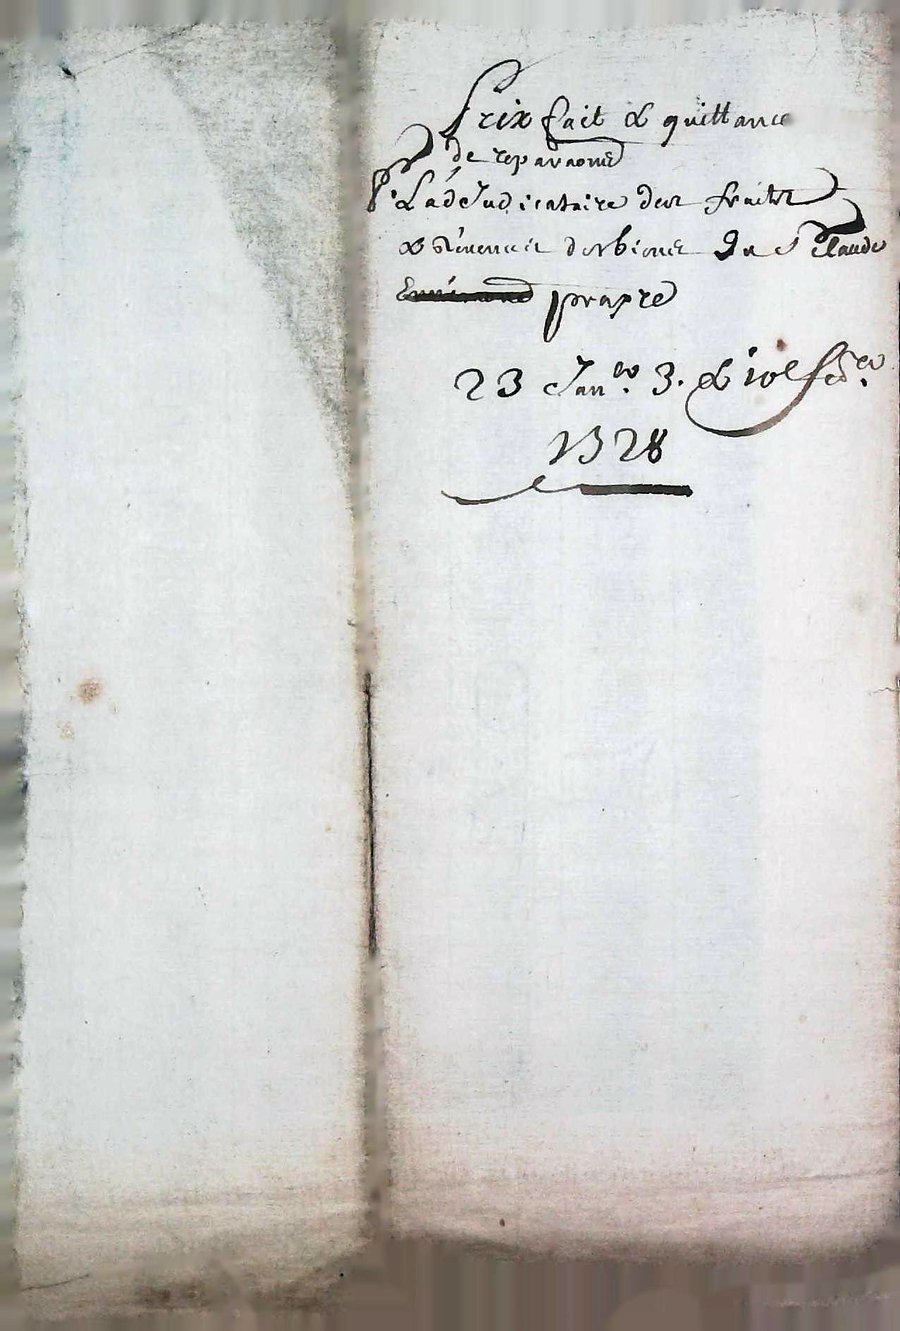 Prix fait & quittance
de reparaons
Pr Ladjudicataire des fruits
& revenus des biens Du S Claude
propre
23 Janer 3. & 10e fer
1728